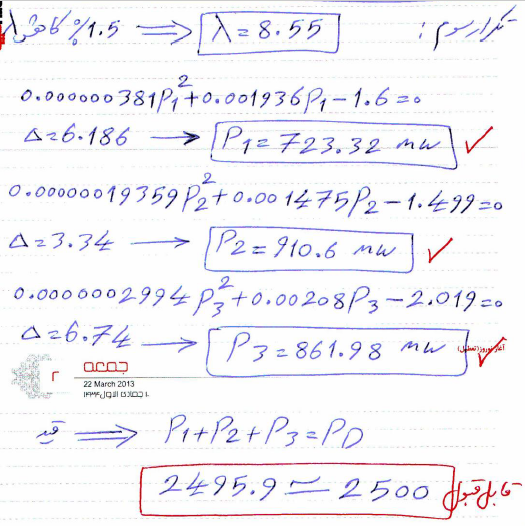 تکرار سوم :
1.5% کاهش λ ⟹ λ=8.55
0.000000381P₁²+0.001936P₁−1.6=0
Δ=6.186 → P₁=723.32 mw ✓
0.00000019359P₂²+0.001475P₂−1.499=0
Δ=3.34 → P₂=910.6 mw ✓
0.0000002994P₃²+0.00208P₃−2.019=0
Δ=6.74 → P₃=861.98 mw ✓
آغاز نوروز (تعطیل)
۲ جمعه
22 March 2013
۱۰ جمادی الاول ۱۴۳۴
قید ⟹ P₁+P₂+P₃=PD
2495.9 ≃ 2500 قابل قبول